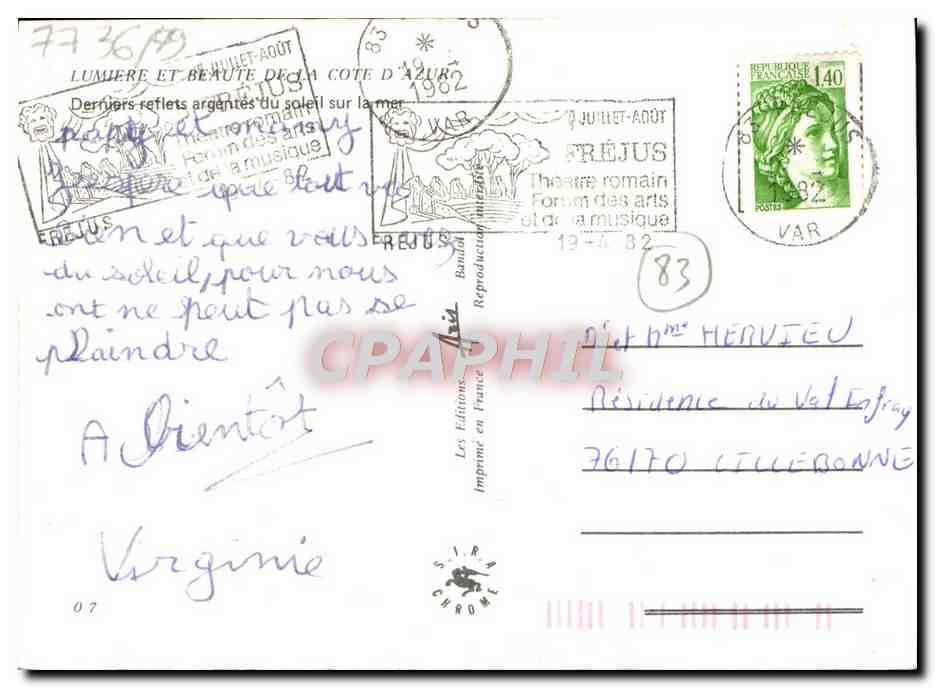 77 36/49
LUMIERE ET BEAUTE DE LA COTE D'AZUR
Derniers reflets argentés du soleil sur la mer
JUILLET-AOÛT
FRÉJUS
Théâtre romain
Forum des arts
et de la musique
82
FREJUS
83
19-4
1982
VAR
JUILLET-AOÛT
FRÉJUS
Théâtre romain
Forum des arts
et de la musique
19-4 82
FREJUS
REPUBLIQUE
FRANÇAISE
1,40
POSTES
82
VAR
papy et mamy
J'espère que tout va
bien et que vous
du soleil, pour nous
ont ne peut pas se
plaindre
A Bientôt
Virginie
07
Les Editions Aris Bandol
Imprimé en France Reproduction interdite
S.I.R.A
CHROME
83
M et Mme HERVIEU
Résidence du Val Infray
76170 LILLEBONNE
CPAPHIL